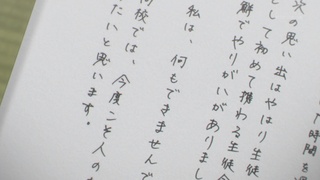 た時間を過
次の思い出はやはり生徒
として初めて携わる生徒会
鮮でやりがいがありまし
私は、何もできませんで
高校では、今度こそ人の
たいと思います。